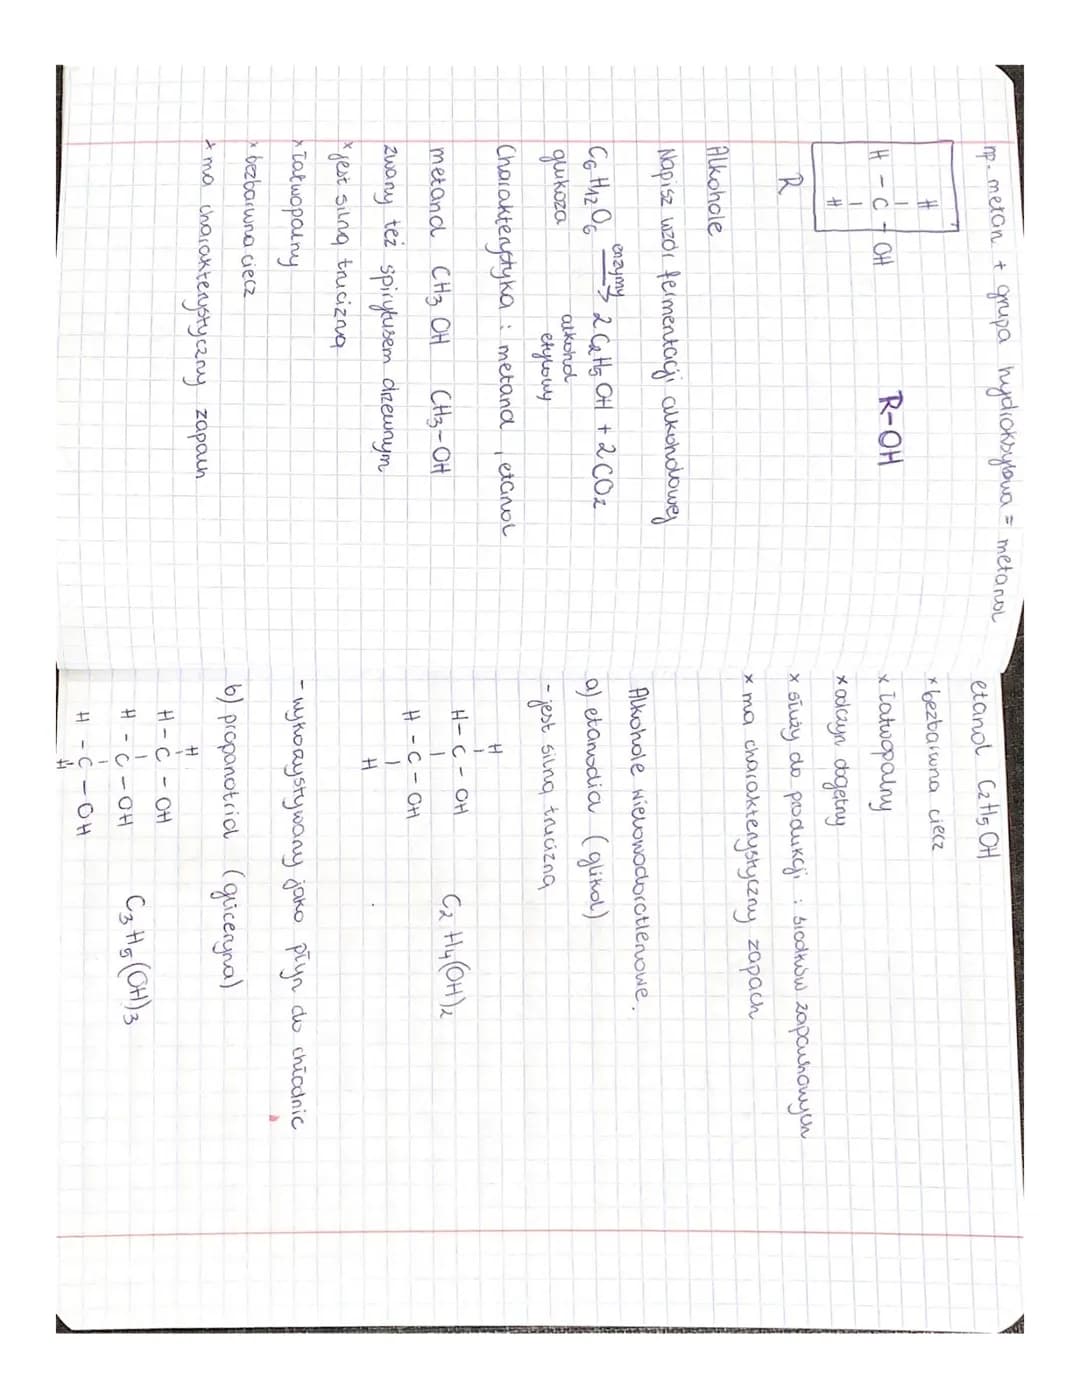 np. metan + grupa hydroksylowa = metanol
H
H - C - OH
H
R-OH
R
Alkohole
Napisz wzór fermentacji alkoholowej
C6H12O6 enzymy → 2 C2H5OH + 2 CO2
glukoza alkohol
etylowy
Charakterystyka : metanol, etanol
metanol CH3OH CH3-OH
zwany też spirytusem drzewnym
x jest silną trucizną
x łatwopalny
x bezbarwna ciecz
x ma charakterystyczny zapach
etanol C2H5OH
x bezbarwna ciecz
x łatwopalny
x odczyn obojętny
x służy do produkcji : środków zapachowych
x ma charakterystyczny zapach
Alkohole wielowodorotlenowe.
a) etanodiol (glikol)
- jest silną trucizną
H
H - C - OH C2H4(OH)2
H - C - OH
H
- wykorzystywany jako płyn do chłodnic
b) propanotriol (gliceryna)
H
H - C - OH
H - C - OH C3H5(OH)3
H - C - OH
H